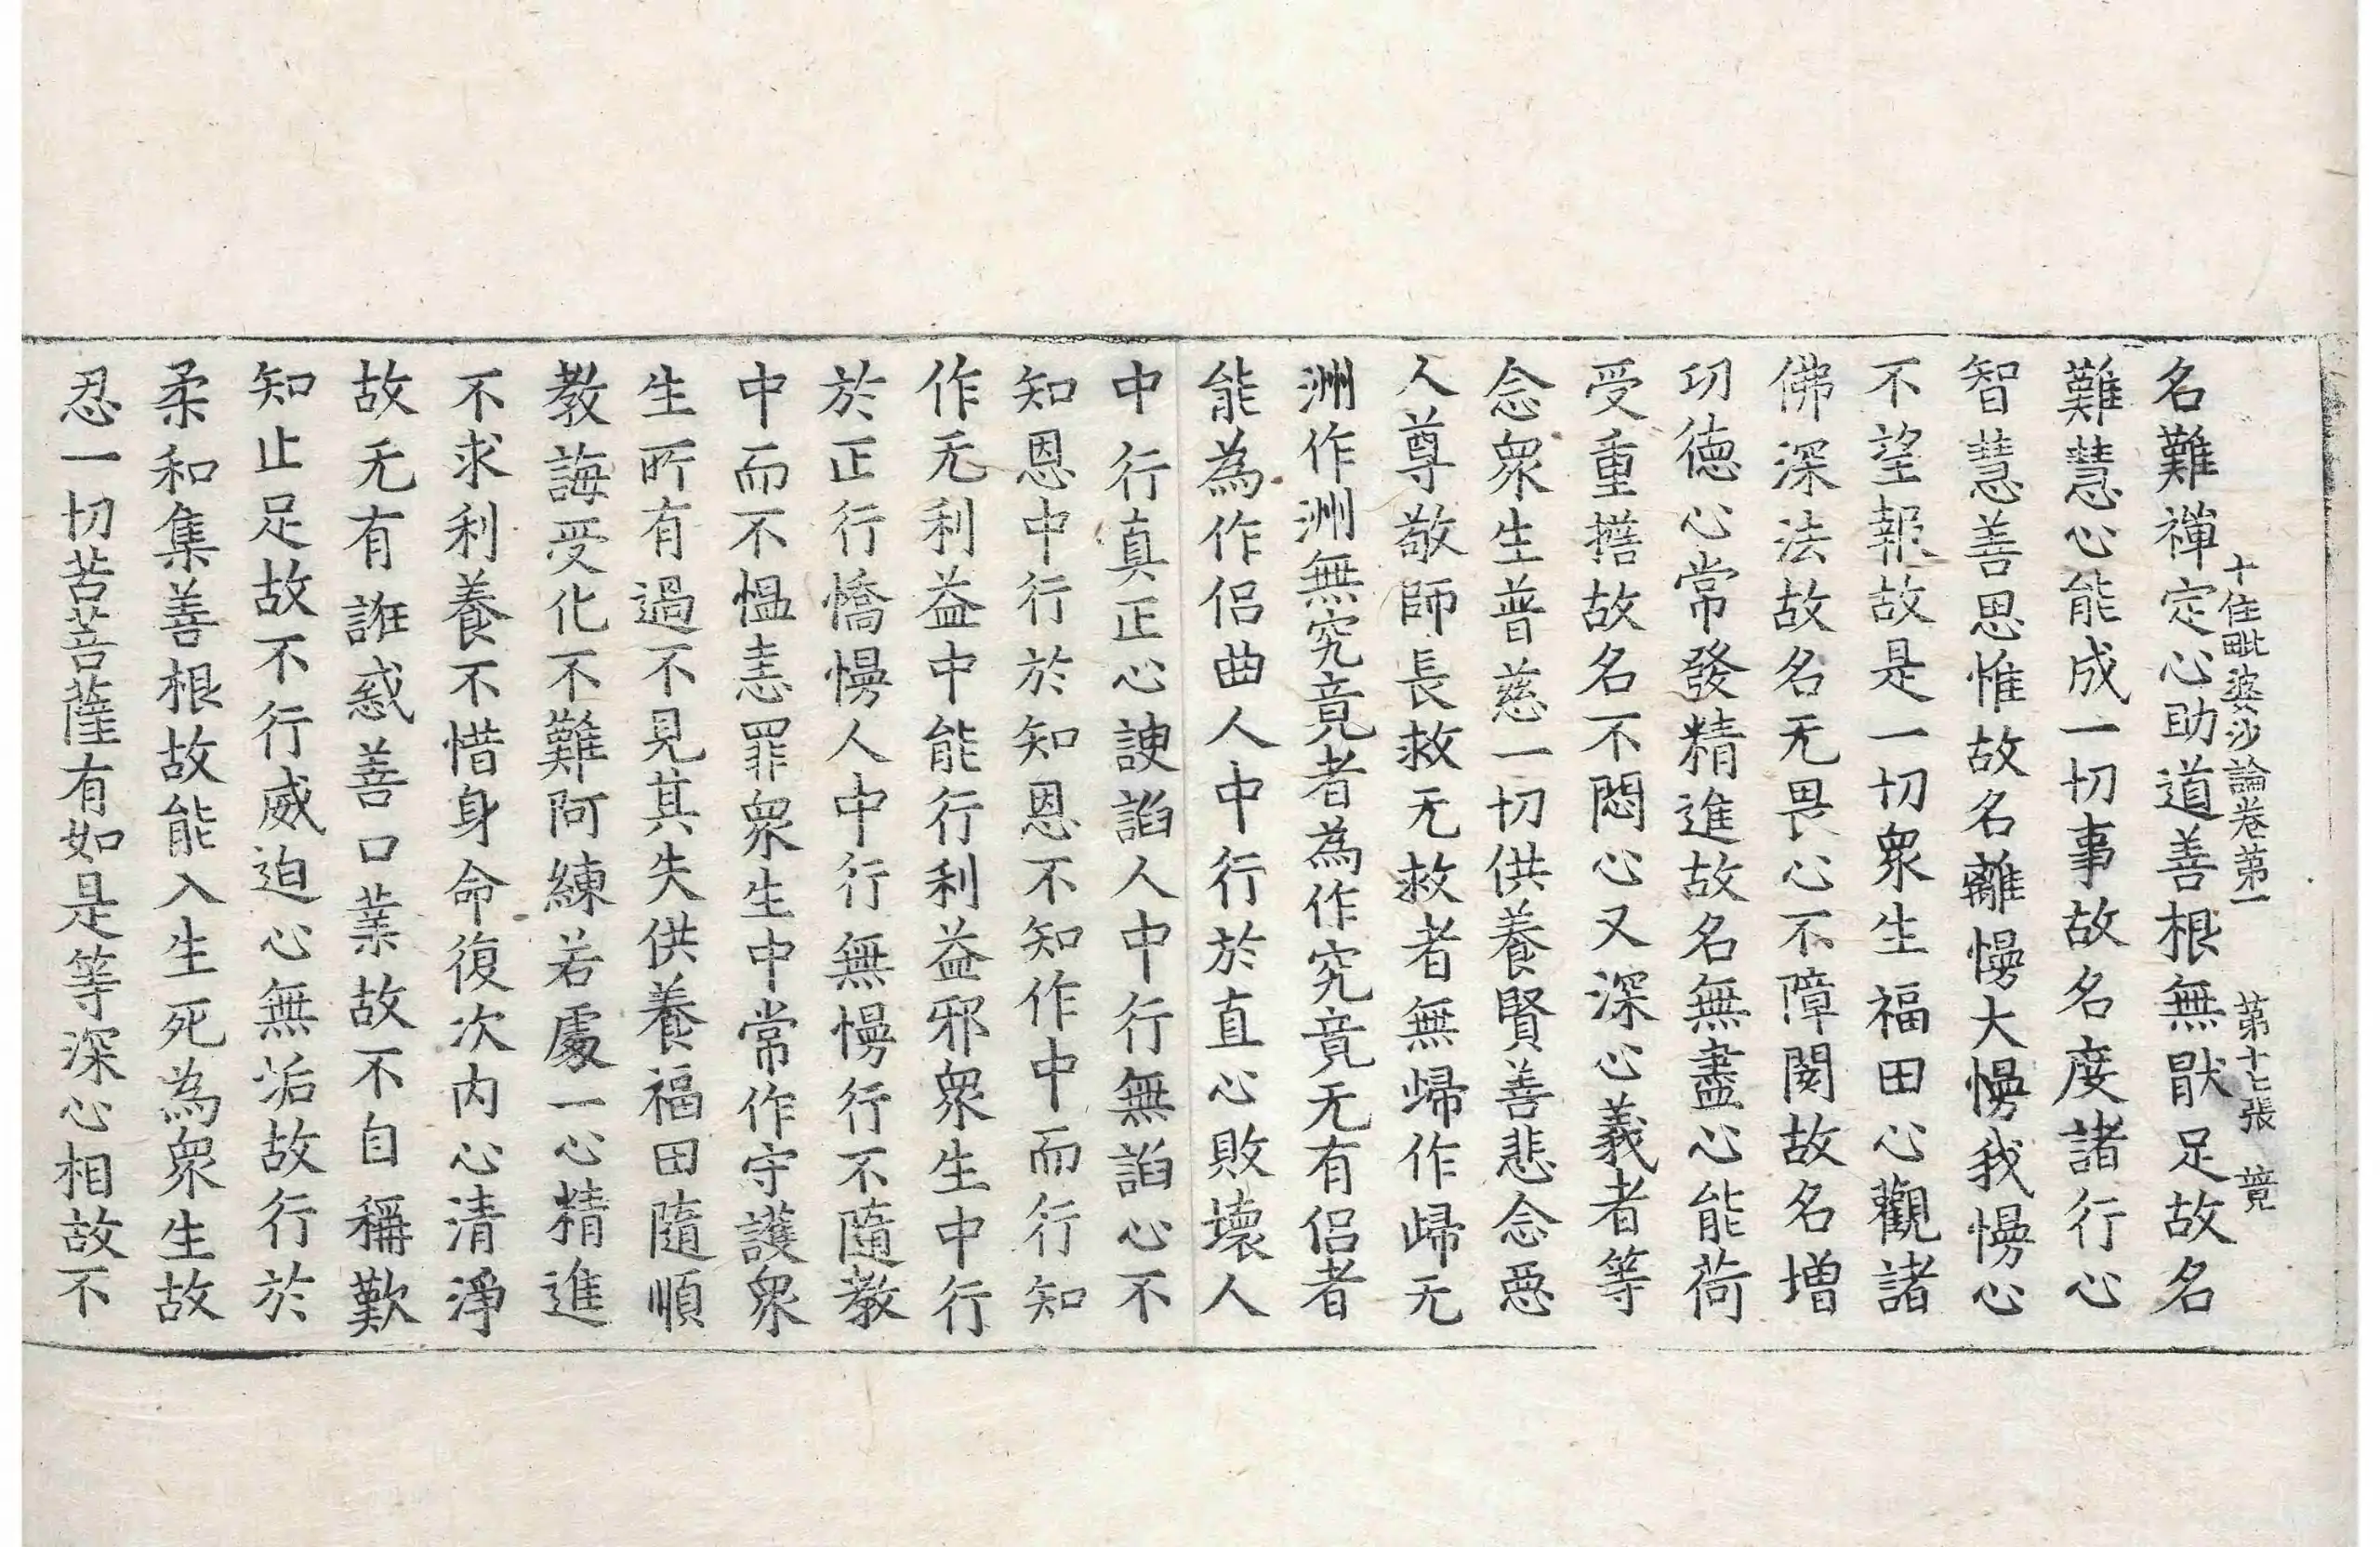 十住毗婆沙論卷第一 第十七張 競
名難禪定心助道善根無猒足故名
難慧心能成一切事故名度諸行心
智慧善思惟故名離慢大慢我慢心
不望報故是一切衆生福田心觀諸
佛深法故名无畏心不障閡故名增
功德心常發精進故名無盡心能荷
受重擔故名不悶心又深心義者等
念衆生普慈一切供養賢善悲念惡
人尊敬師長救无救者無歸作歸无
洲作洲無究竟者為作究竟无有侶者
能為作侶曲人中行於直心敗壞人
中行真正心諛諂人中行無諂心不
知恩中行於知恩不知作中而行知
作无利益中能行利益邪衆生中行
於正行憍慢人中行無慢行不隨教
中而不愠恚罪衆生中常作守護衆
生所有過不見其失供養福田隨順
教誨受化不難阿練若處一心精進
不求利養不惜身命復次内心清淨
故无有誑惑善口業故不自稱歎
知止足故不行威迫心無垢故行於
柔和集善根故能入生死為衆生故
忍一切苦菩薩有如是等深心相故不